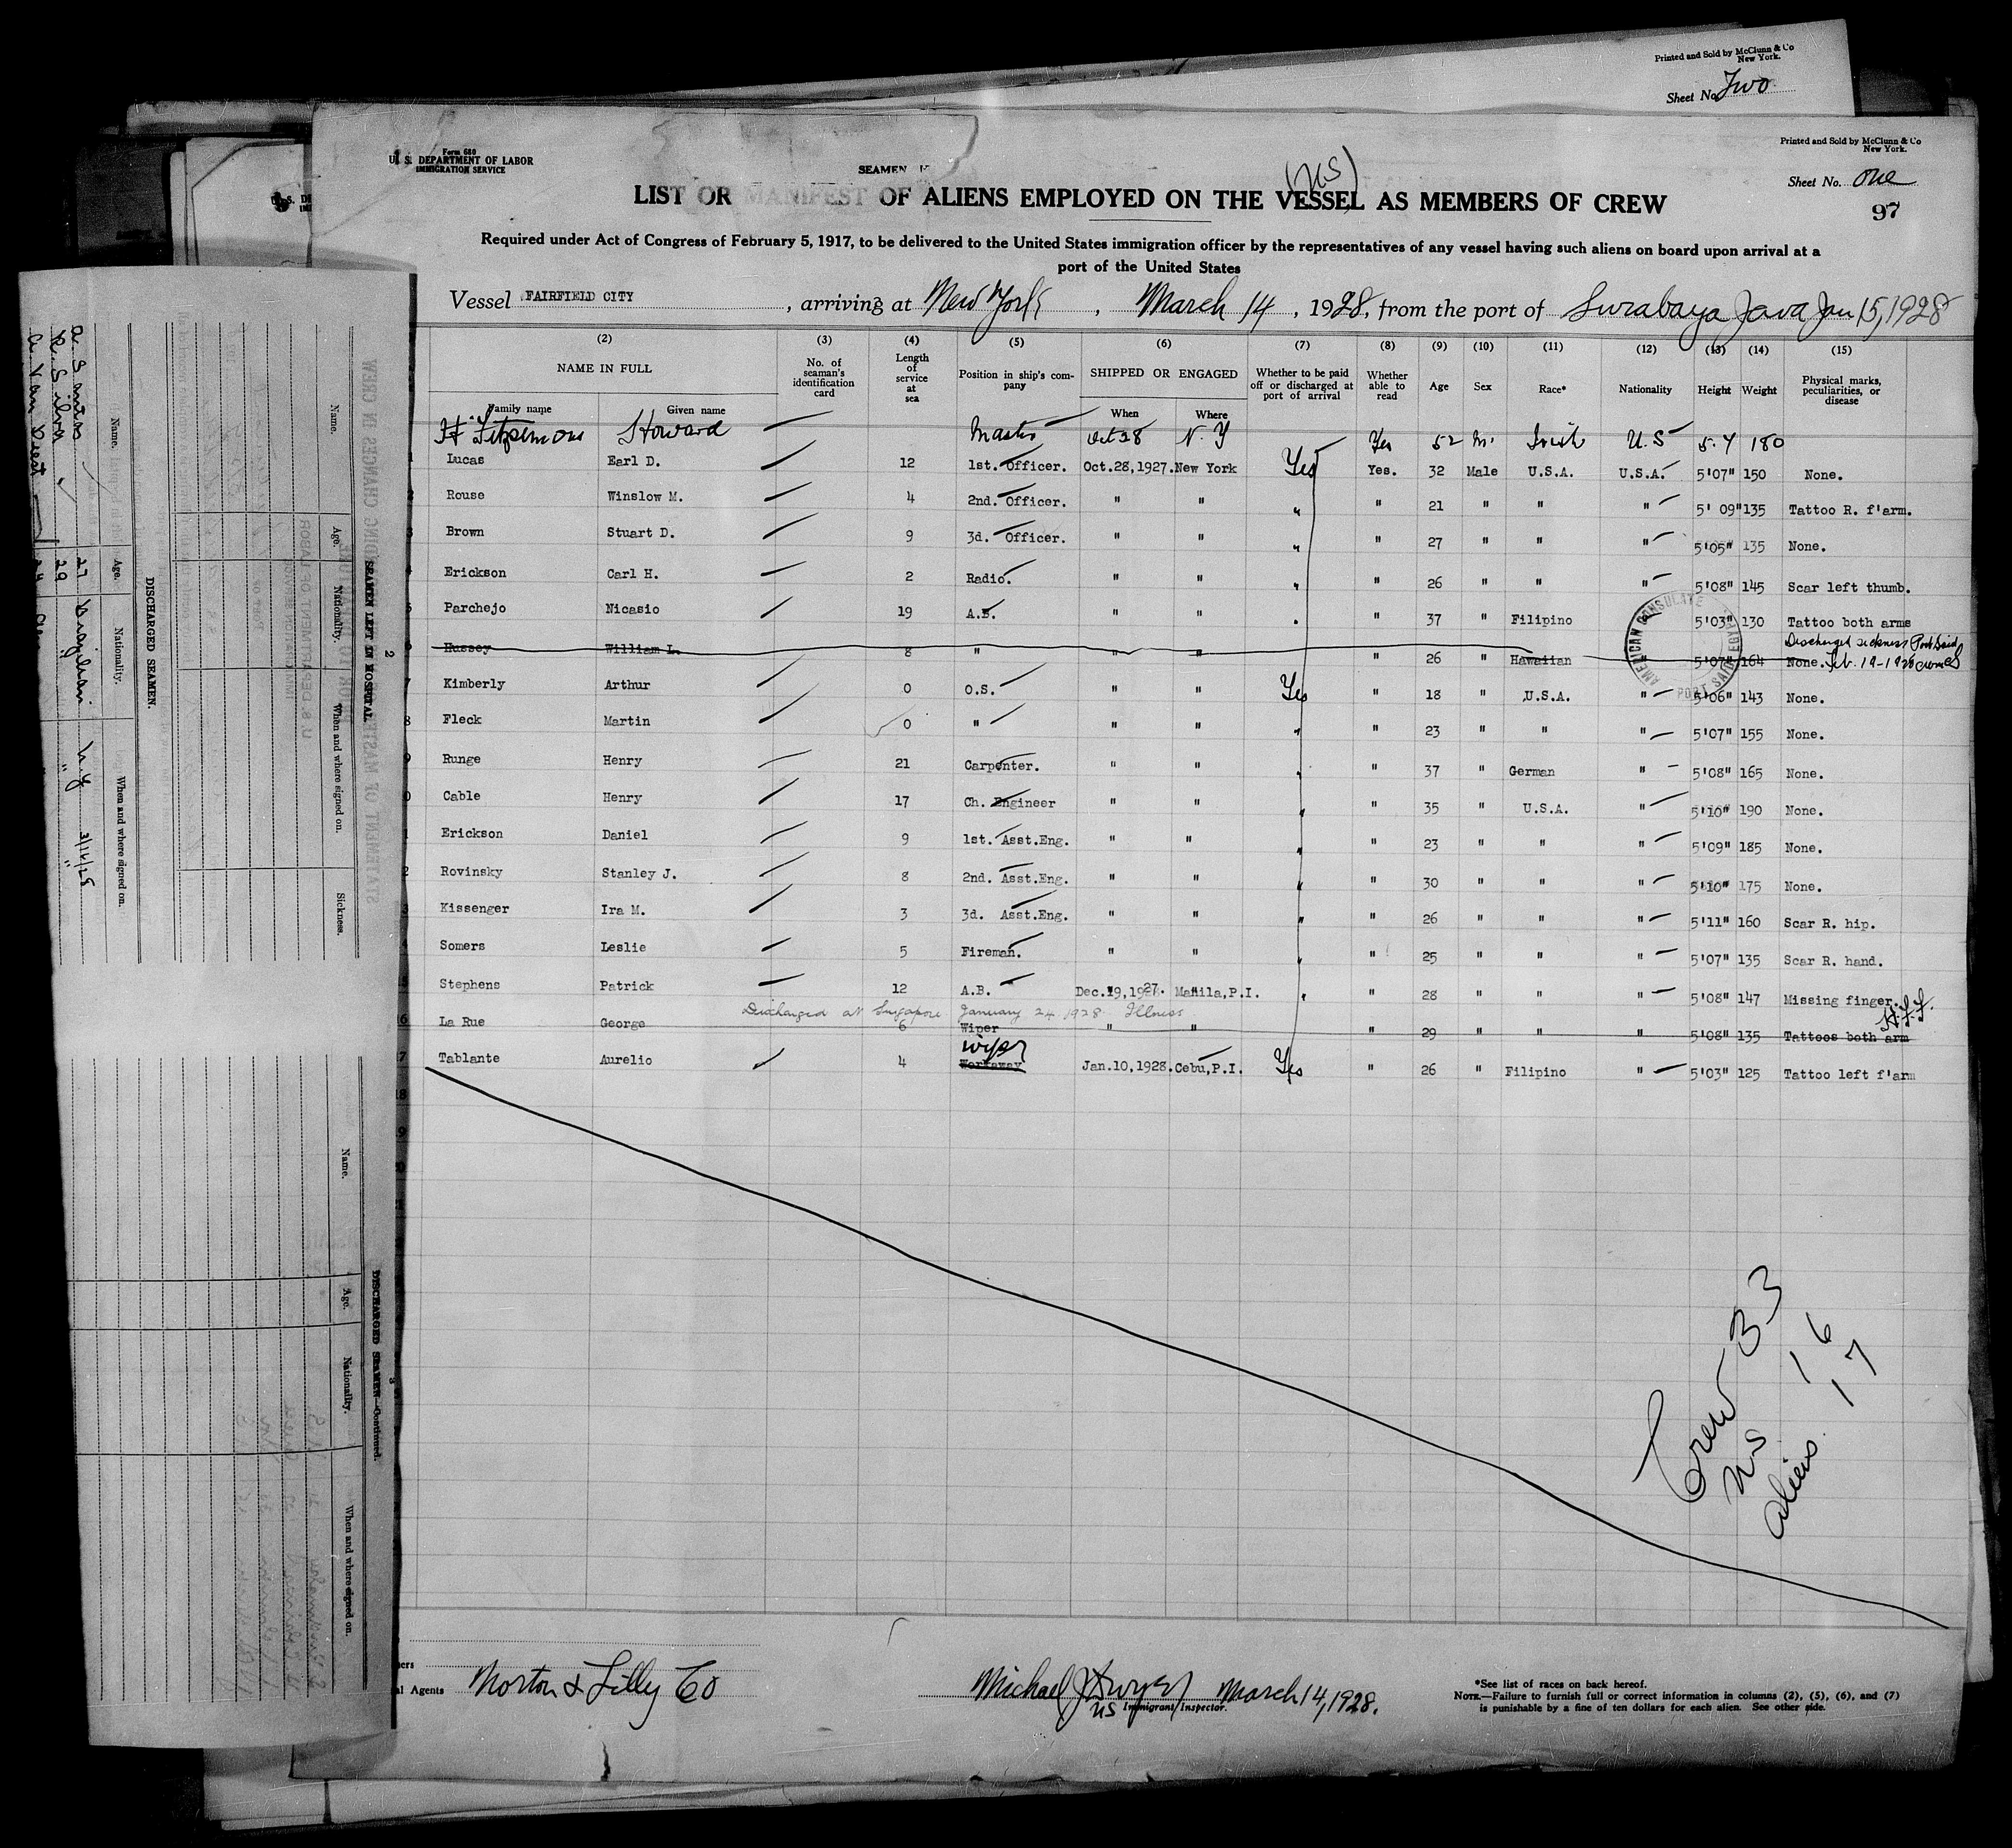 Printed and Sold by McClunn & Co
New York.
Sheet No. Two
Form 680
U. S. DEPARTMENT OF LABOR
IMMIGRATION SERVICE
SEAMEN
(US)
Printed and Sold by McClunn & Co
New York.
Sheet No. One
97
LIST OR MANIFEST OF ALIENS EMPLOYED ON THE VESSEL AS MEMBERS OF CREW
Required under Act of Congress of February 5, 1917, to be delivered to the United States immigration officer by the representatives of any vessel having such aliens on board upon arrival at a
port of the United States
Vessel FAIRFIELD CITY, arriving at New York, March 14, 1928, from the port of Surabaya Java Jan 15, 1928
(2) (3) (4) (5) (6) (7) (8) (9) (10) (11) (12) (13) (14) (15)
NAME IN FULL No. of seaman's identification card Length of service at sea Position in ship's company SHIPPED OR ENGAGED Whether to be paid off or discharged at port of arrival Whether able to read Age Sex Race* Nationality Height Weight Physical marks, peculiarities, or disease
Family name Given name When Where
Howard Master Oct 28 N.Y Yes 52 M. Irish U.S 5.7 180
1 Lucas Earl D. 12 1st. Officer. Oct.28,1927. New York Yes Yes. 32 Male U.S.A. U.S.A. 5'07" 150 None.
2 Rouse Winslow M. 4 2nd. Officer. " " " " 21 " " " 5' 09" 135 Tattoo R. f'arm.
3 Brown Stuart D. 9 3d. Officer. " " " " 27 " " " 5'05" 135 None.
4 Erickson Carl H. 2 Radio. " " " " 26 " " " 5'08" 145 Scar left thumb.
5 Parchejo Nicasio 19 A.B. " " " " 37 " Filipino " 5'03" 130 Tattoo both arms
Discharged sickness Port Said
6 Hussey William L. 8 " " " " 26 " Hawaiian 5'07" 164 None. Feb. 19-1928
AMERICAN CONSULATE PORT SAID, EGYPT
7 Kimberly Arthur 0 O.S. " " Yes " 18 " U.S.A. " 5'06" 143 None.
8 Fleck Martin 0 " " " " " 23 " " " 5'07" 155 None.
9 Runge Henry 21 Carpenter. " " " " 37 " German " 5'08" 165 None.
0 Cable Henry 17 Ch. Engineer " " " " 35 " U.S.A. " 5'10" 190 None.
1 Erickson Daniel 9 1st. Asst.Eng. " " " " 23 " " " 5'09" 185 None.
2 Rovinsky Stanley J. 8 2nd. Asst.Eng. " " " " 30 " " " 5'10" 175 None.
3 Kissenger Ira M. 3 3d. Asst.Eng. " " " " 26 " " " 5'11" 160 Scar R. hip.
4 Somers Leslie 5 Fireman. " " " " 25 " " " 5'07" 135 Scar R. hand.
15 Stephens Patrick 12 A.B. Dec.19,1927. Manila,P.I. " " 28 " " " 5'08" 147 Missing finger.
Discharged at Singapore January 24 1928 Illness H.F.
16 La Rue George 6 Wiper " " " 29 " " " 5'08" 135 Tattoos both arm
wiper
17 Tablante Aurelio 4 Workaway Jan.10,1928. Cebu,P.I. Yes " 26 " Filipino " 5'03" 125 Tattoo left f'arm
18
Crew 33
US 16
aliens 17
Agents Norton & Lilly Co
Michael J Dwyer March 14, 1928.
US Immigrant Inspector.
*See list of races on back hereof.
NOTE.—Failure to furnish full or correct information in columns (2), (5), (6), and (7)
is punishable by a fine of ten dollars for each alien. See other side.
STATEMENT OF MASTER REGARDING CHANGES IN CREW
SEAMEN LEFT IN HOSPITAL
Name. Age. Nationality. When and where signed on. Sickness.
U. S. DEPARTMENT OF LABOR
IMMIGRATION SERVICE
2
DISCHARGED SEAMEN.
Name. Age. Nationality. When and where signed on.
27 Brazilian N.Y 3/14/28
R. Silva 29 " "
3
DISCHARGED SEAMEN—Continued.
Name. Age. Nationality. When and where signed on.